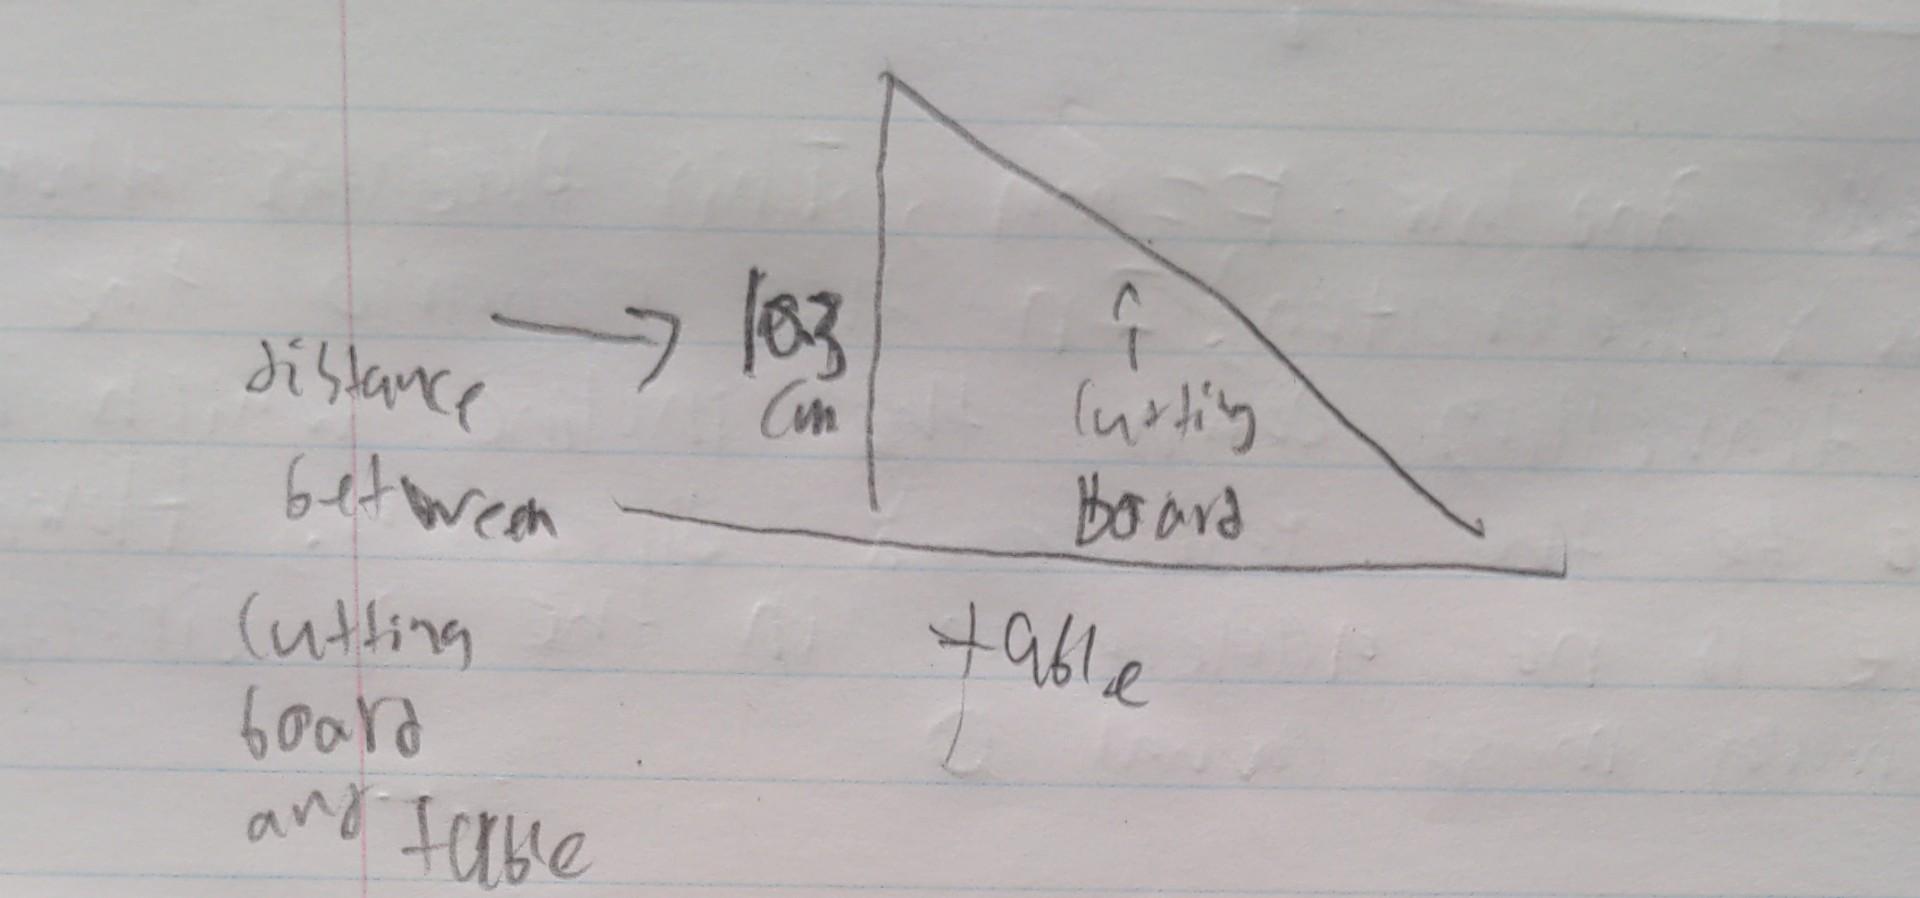 distance
between
cutting
board
and table
cm
cutting
board
table